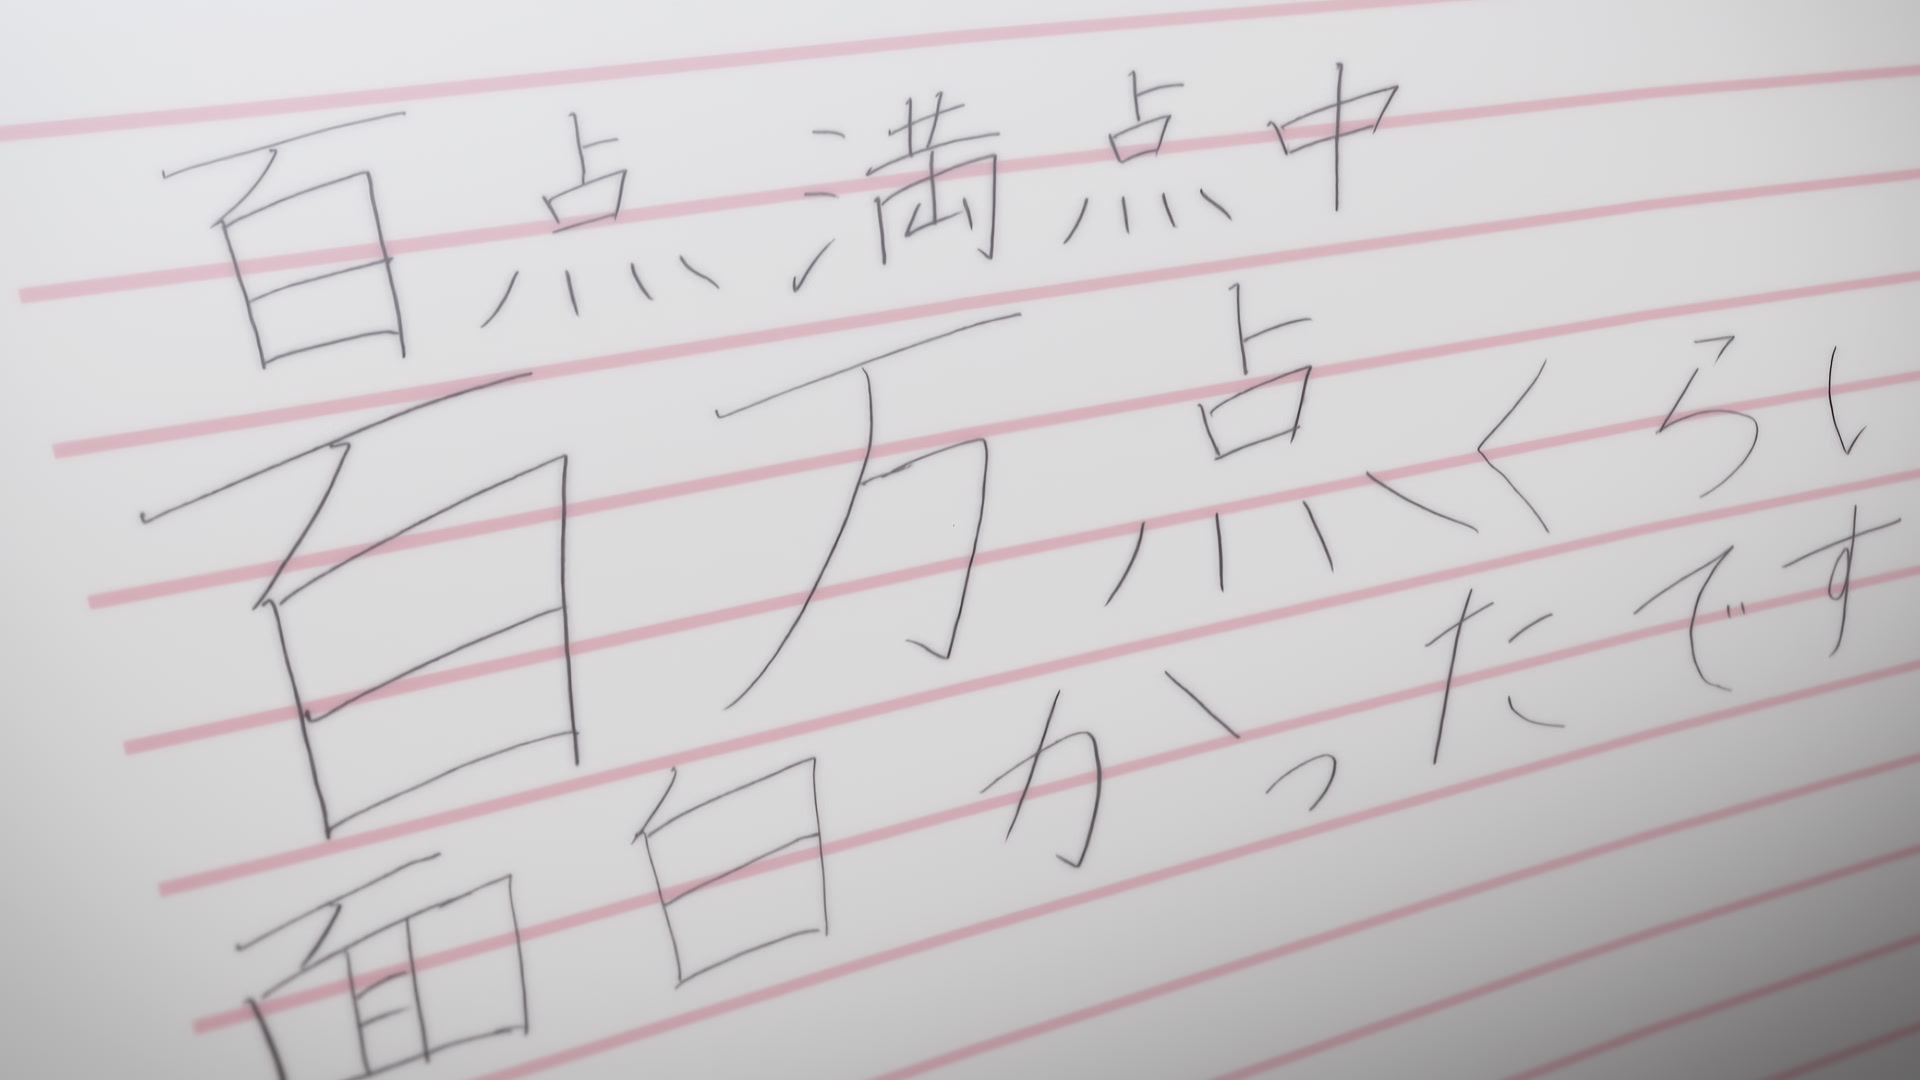 百点満点中
百万点くらい
面白かったです